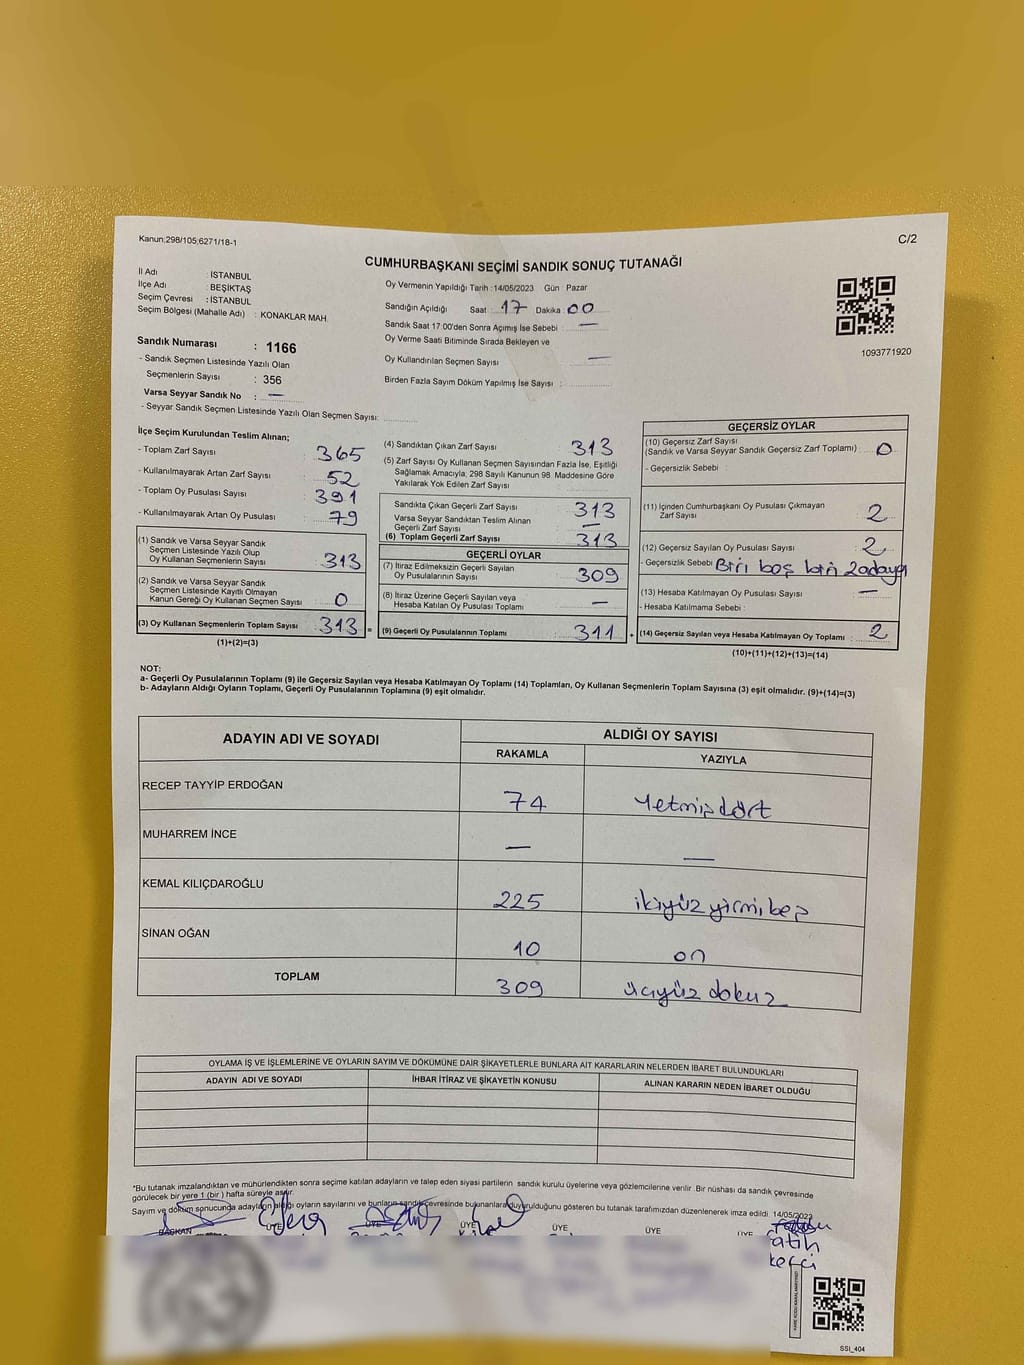 Kanun;298/105;6271/18-1
C/2
CUMHURBAŞKANI SEÇİMİ SANDIK SONUÇ TUTANAĞI
İl Adı : İSTANBUL
İlçe Adı : BEŞİKTAŞ
Seçim Çevresi : İSTANBUL
Seçim Bölgesi (Mahalle Adı) : KONAKLAR MAH.
Oy Vermenin Yapıldığı Tarih : 14/05/2023 Gün : Pazar
Sandığın Açıldığı Saat : 17 Dakika : 00
Sandık Saat 17:00'den Sonra Açımış İse Sebebi : —
Oy Verme Saati Bitiminde Sırada Bekleyen ve
Oy Kullandırılan Seçmen Sayısı —
Birden Fazla Sayım Döküm Yapılmış İse Sayısı :
1093771920
Sandık Numarası : 1166
- Sandık Seçmen Listesinde Yazılı Olan
Seçmenlerin Sayısı : 356
Varsa Seyyar Sandık No : —
- Seyyar Sandık Seçmen Listesinde Yazılı Olan Seçmen Sayısı:
İlçe Seçim Kurulundan Teslim Alınan;
- Toplam Zarf Sayısı 365
- Kullanılmayarak Artan Zarf Sayısı 52
- Toplam Oy Pusulası Sayısı 391
- Kullanılmayarak Artan Oy Pusulası 79
(1) Sandık ve Varsa Seyyar Sandık
Seçmen Listesinde Yazılı Olup
Oy Kullanan Seçmenlerin Sayısı 313
(2) Sandık ve Varsa Seyyar Sandık
Seçmen Listesinde Kayıtlı Olmayan
Kanun Gereği Oy Kullanan Seçmen Sayısı 0
(3) Oy Kullanan Seçmenlerin Toplam Sayısı 313 =
(1)+(2)=(3)
(4) Sandıktan Çıkan Zarf Sayısı 313
(5) Zarf Sayısı Oy Kullanan Seçmen Sayısından Fazla İse, Eşitliği
Sağlamak Amacıyla; 298 Sayılı Kanunun 98. Maddesine Göre
Yakılarak Yok Edilen Zarf Sayısı
Sandıkta Çıkan Geçerli Zarf Sayısı 313
Varsa Seyyar Sandıktan Teslim Alınan
Geçerli Zarf Sayısı —
(6) Toplam Geçerli Zarf Sayısı 313
GEÇERLİ OYLAR
(7) İtiraz Edilmeksizin Geçerli Sayılan
Oy Pusulalarının Sayısı 309
(8) İtiraz Üzerine Geçerli Sayılan veya
Hesaba Katılan Oy Pusulası Toplamı —
(9) Geçerli Oy Pusulalarının Toplamı 311 +
GEÇERSİZ OYLAR
(10) Geçersiz Zarf Sayısı
(Sandık ve Varsa Seyyar Sandık Geçersiz Zarf Toplamı) : 0
- Geçersizlik Sebebi :
(11) İçinden Cumhurbaşkanı Oy Pusulası Çıkmayan
Zarf Sayısı 2
(12) Geçersiz Sayılan Oy Pusulası Sayısı : 2
- Geçersizlik Sebebi Biri boş biri 2adaya
(13) Hesaba Katılmayan Oy Pusulası Sayısı : —
- Hesaba Katılmama Sebebi :
(14) Geçersiz Sayılan veya Hesaba Katılmayan Oy Toplamı : 2
(10)+(11)+(12)+(13)=(14)
NOT:
a- Geçerli Oy Pusulalarının Toplamı (9) ile Geçersiz Sayılan veya Hesaba Katılmayan Oy Toplamı (14) Toplamları, Oy Kullanan Seçmenlerin Toplam Sayısına (3) eşit olmalıdır. (9)+(14)=(3)
b- Adayların Aldığı Oyların Toplamı, Geçerli Oy Pusulalarının Toplamına (9) eşit olmalıdır.
ADAYIN ADI VE SOYADI ALDIĞI OY SAYISI
RAKAMLA YAZIYLA
RECEP TAYYİP ERDOĞAN 74 Yetmiş dört
MUHARREM İNCE — —
KEMAL KILIÇDAROĞLU 225 ikiyüz yirmi beş
SİNAN OĞAN 10 on
TOPLAM 309 üçyüz dokuz
OYLAMA İŞ VE İŞLEMLERİNE VE OYLARIN SAYIM VE DÖKÜMÜNE DAİR ŞİKAYETLERLE BUNLARA AİT KARARLARIN NELERDEN İBARET BULUNDUKLARI
ADAYIN ADI VE SOYADI İHBAR İTİRAZ VE ŞİKAYETİN KONUSU ALINAN KARARIN NEDEN İBARET OLDUĞU
*Bu tutanak imzalandıktan ve mühürlendikten sonra seçime katılan adayların ve talep eden siyasi partilerin sandık kurulu üyelerine veya gözlemcilerine verilir. Bir nüshası da sandık çevresinde
görülecek bir yere 1 (bir) hafta süreyle asılır.
Sayım ve döküm sonucunda adayların aldığı oyların sayılarını ve bunların sandık çevresinde bulunanlara duyurulduğunu gösteren bu tutanak tarafımızdan düzenlenerek imza edildi. 14/05/2023
BAŞKAN ÜYE ÜYE ÜYE ÜYE ÜYE ÜYE
Fatih
SSİ_404